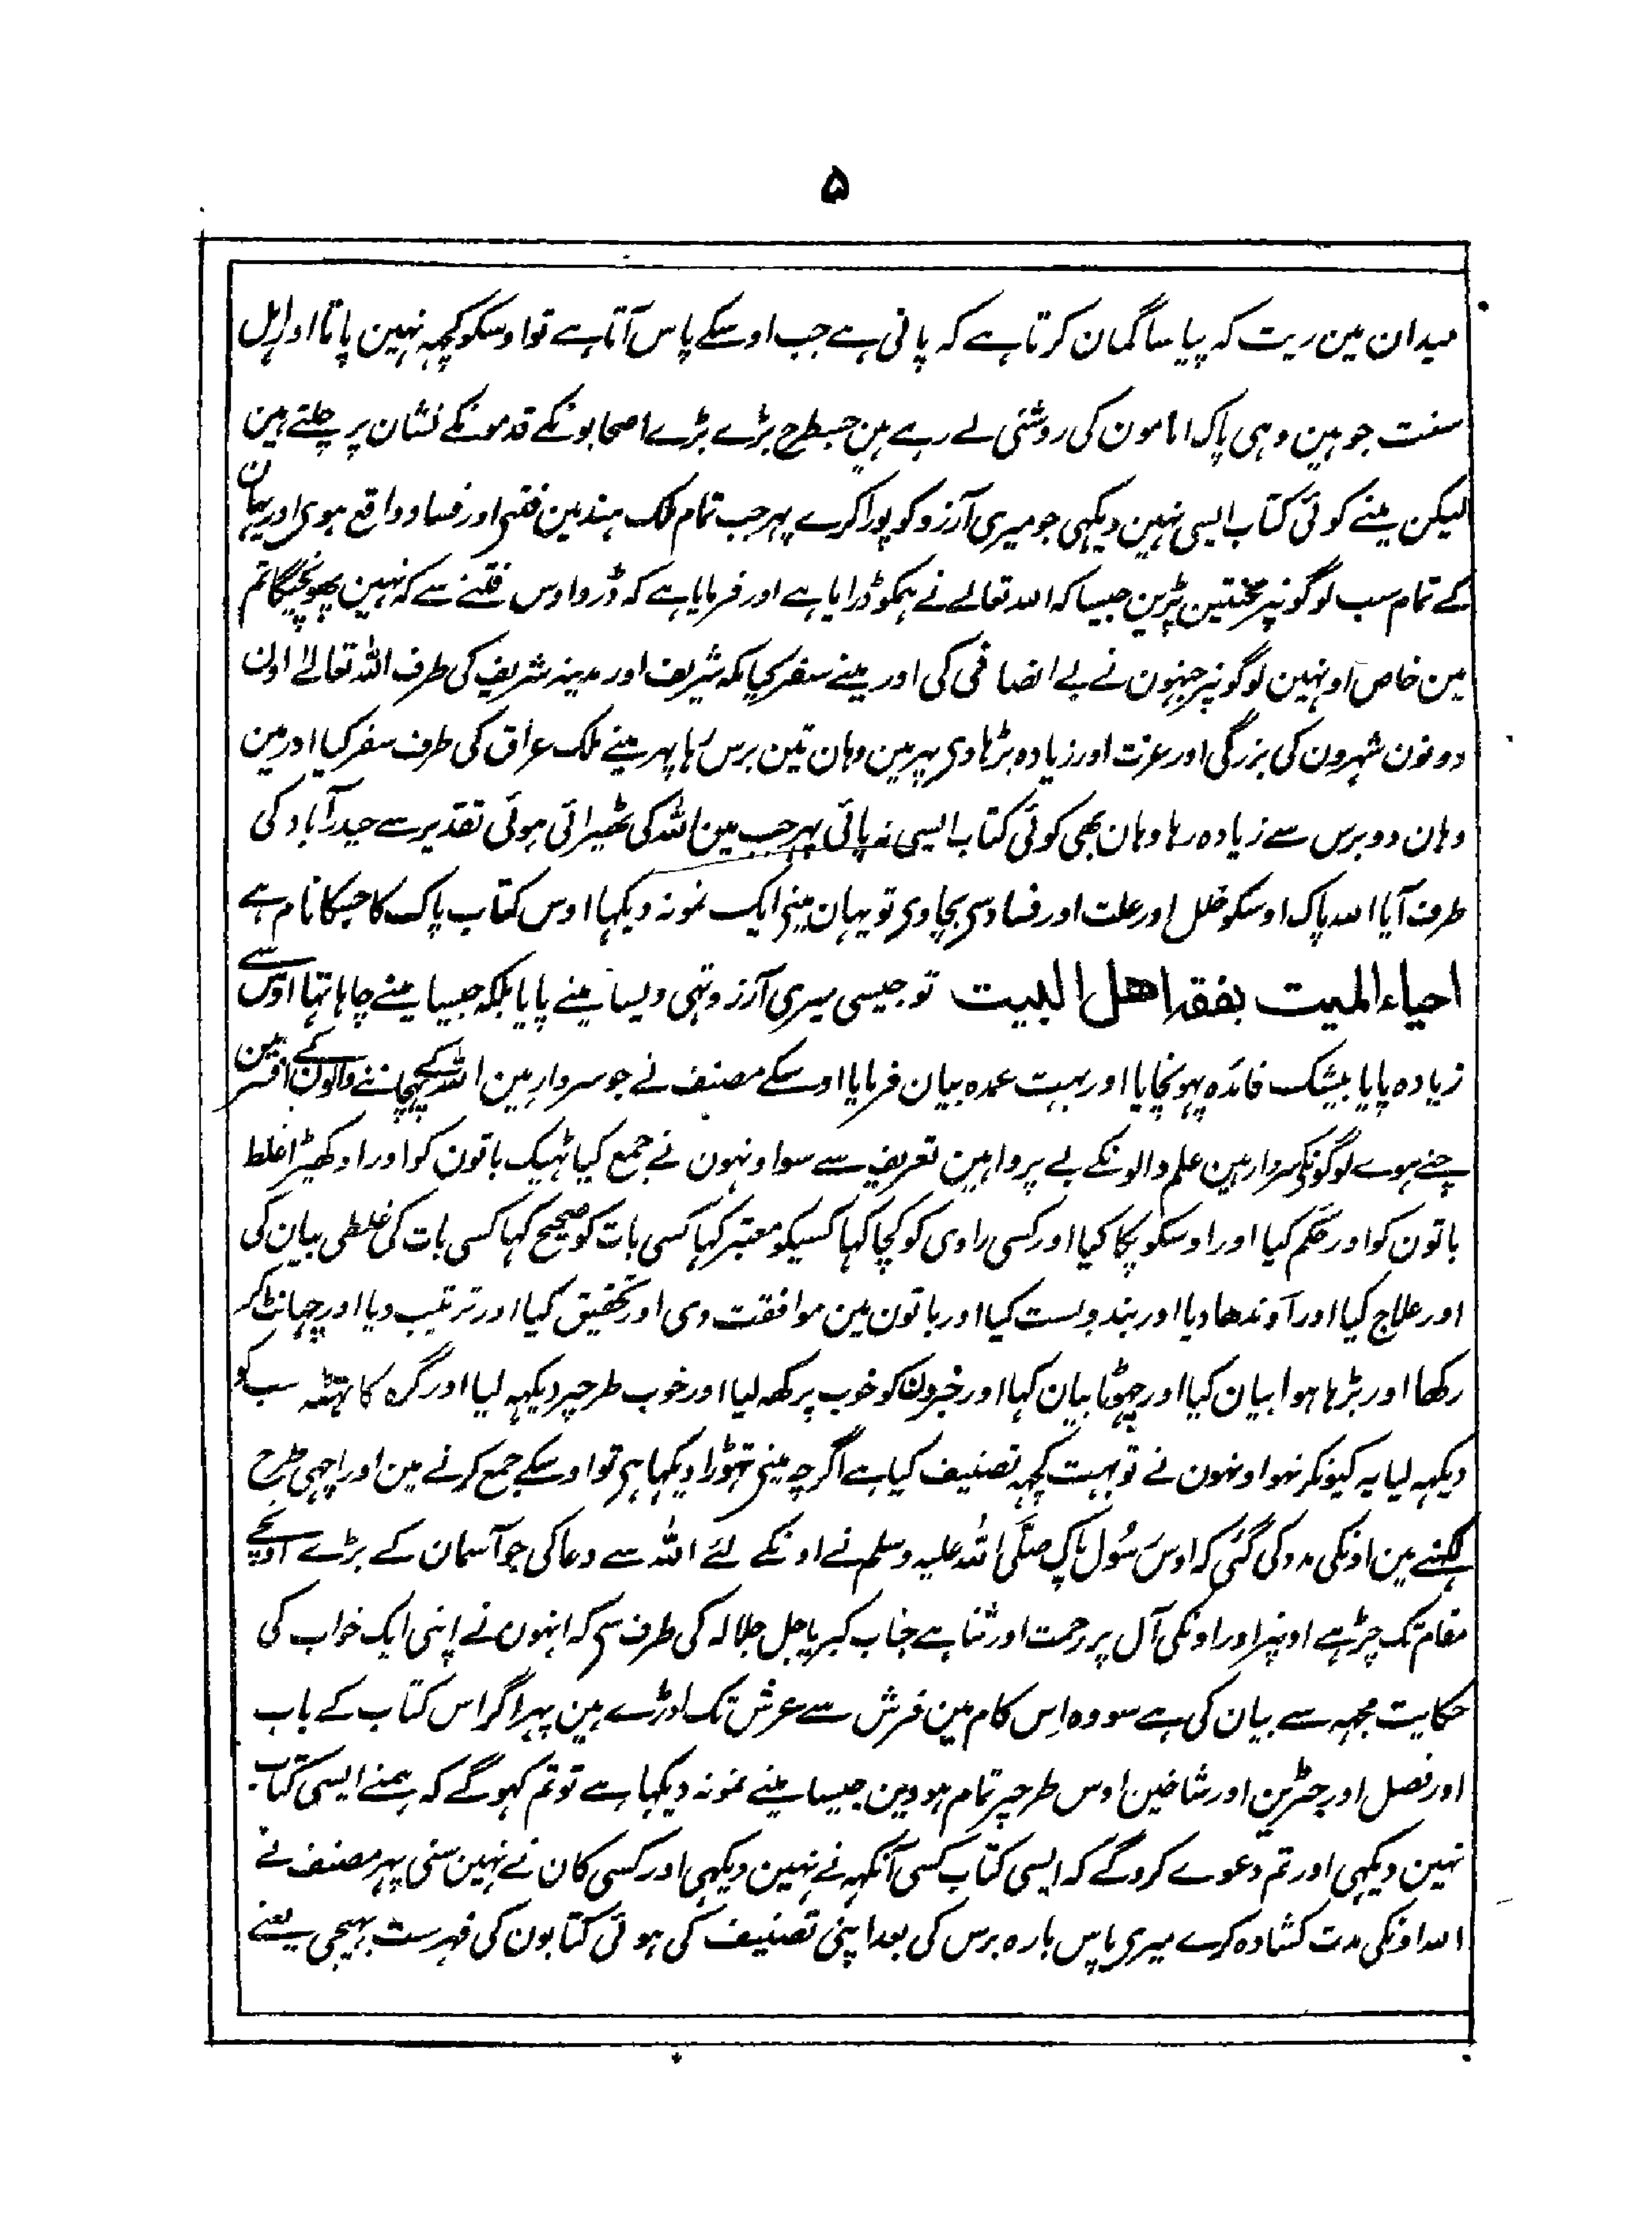 ۵
میدان مین ریت کہ پیاسا گمان کرتا ہے کہ پانی ہے جب اوسکے پاس آتا ہے تو اوسکو کچہہ نہین پاتا اور اہل
سنت جو ہین وہی پاک امامون کی روشنی لے رہے ہین جسطرح بڑے بڑے اصحابونکے قدمونکے نشان پر چلتے ہین
لیکن مینے کوئی کتاب ایسی نہین دیکہی جو میری آرزو کو پورا کرے پہر جب تمام ملک ہند مین فتنی اور فساد واقع ہوی اور یہان
کے تمام سب لوگونپر سختتین پڑین جیسا کہ اللہ تعالے نے ہمکو ڈرایا ہے اور فرمایا ہے کہ ڈرو اوس فتنے سے کہ نہین پھونچیگا تم
مین خاص اونہین لوگونپر جنہون نے بے انصافی کی اور مینے سفر کیا مکہ شریف اور مدینہ شریف کی طرف اللہ تعالےٰ اون
دونون شہرون کی بزرگی اور عزت اور زیادہ بڑہا دی پہر مین وہان تین برس رہا پہر مینے ملک عراق کی طرف سفر کیا اور مین
وہان دو برس سے زیادہ رہا وہان بھی کوئی کتاب ایسی نہ پائی پہر جب مین اللہ کی ٹھیرائی ہوئی تقدیر سے حیدرآباد کی
طرف آیا اللہ پاک اوسکو خلل اور علت اور فسادسی بچاوی تو یہان مینی ایک نمونہ دیکہا اوس کتاب پاک کا جسکا نام ہے
احیاء المیت بفقہ اھل البیت تو جیسی میری آرزو تہی ویسا مینے پایا بلکہ جیسا مینے چاہا تہا اوس سے
زیادہ پایا بیشک فائدہ پہونچایا اور بہت عمدہ بیان فرمایا اوسکے مصنف نے جو سردار ہین اللہ کے پہچاننے والون کے افسر ہین
چنے ہوے لوگونکی سردار ہین علم والونکے بے پروا ہین تعریف سے سو اونہون نے جمع کیا ٹہیک باتون کو اور اوکھیڑا غلط
باتون کو اور حکم کیا اور اوسکو پکا کیا اور کسی راوی کو کچا کہا کسیکو معتبر کہا کسی بات کو صحیح کہا کسی بات کی غلطی بیان کی
اور علاج کیا اور آوندھا دیا اور بندوبست کیا اور باتون مین موافقت دی اور تحقیق کیا اور ترتیب دیا اور چہانٹ کر
رکھا اور بڑہا ہوا بیان کیا اور چہوٹا بیان کہا اور خبرون کو خوب پرکھہ لیا اور خوب طرحپر دیکہہ لیا اور گرہ کا سب کو
دیکہہ لیا یہ کیونکر نہو اونہون نے تو بہت کچہہ تصنیف کیا ہے اگرچہ مینی تہوڑا دیکہا ہی تو اوسکے جمع کرنے مین اور اچہی طرح
لکہنے مین اونکی مدد کی گئی کہ اوس رسُول پاک صلّی اللہ علیہ وسلم نے اونکے لئے اللہ سے دعا کی جو آسمان کے بڑے اونچے
مقام تک چڑہے اونپر اور اونکی آل پر رحمت اور ثنا ہے جناب کبریا جل جلالہ کی طرف سی کہ انہون نے اپنی ایک خواب کی
حکایت مجہہ سے بیان کی ہے سو وہ اِس کام مین فرش سے عرش تک اوڑے ہین پہر اگر اس کتاب کے باب
اور فصل اور جڑین اور شاخین اوس طرحپر تمام ہووین جیسا مینے نمونہ دیکہا ہے تو تم کہوگے کہ ہمنے ایسی کتاب
نہین دیکہی اور تم دعوے کروگے کہ ایسی کتاب کسی آنکہہ نے نہین دیکہی اور کسی کان نے نہین سنی پہر مصنف نے
اللہ اونکی مدت کشادہ کرے میری پاس بارہ برس کی بعد اپنی تصنیف کی ہوئی کتابون کی فہرست بہیجی یعنے